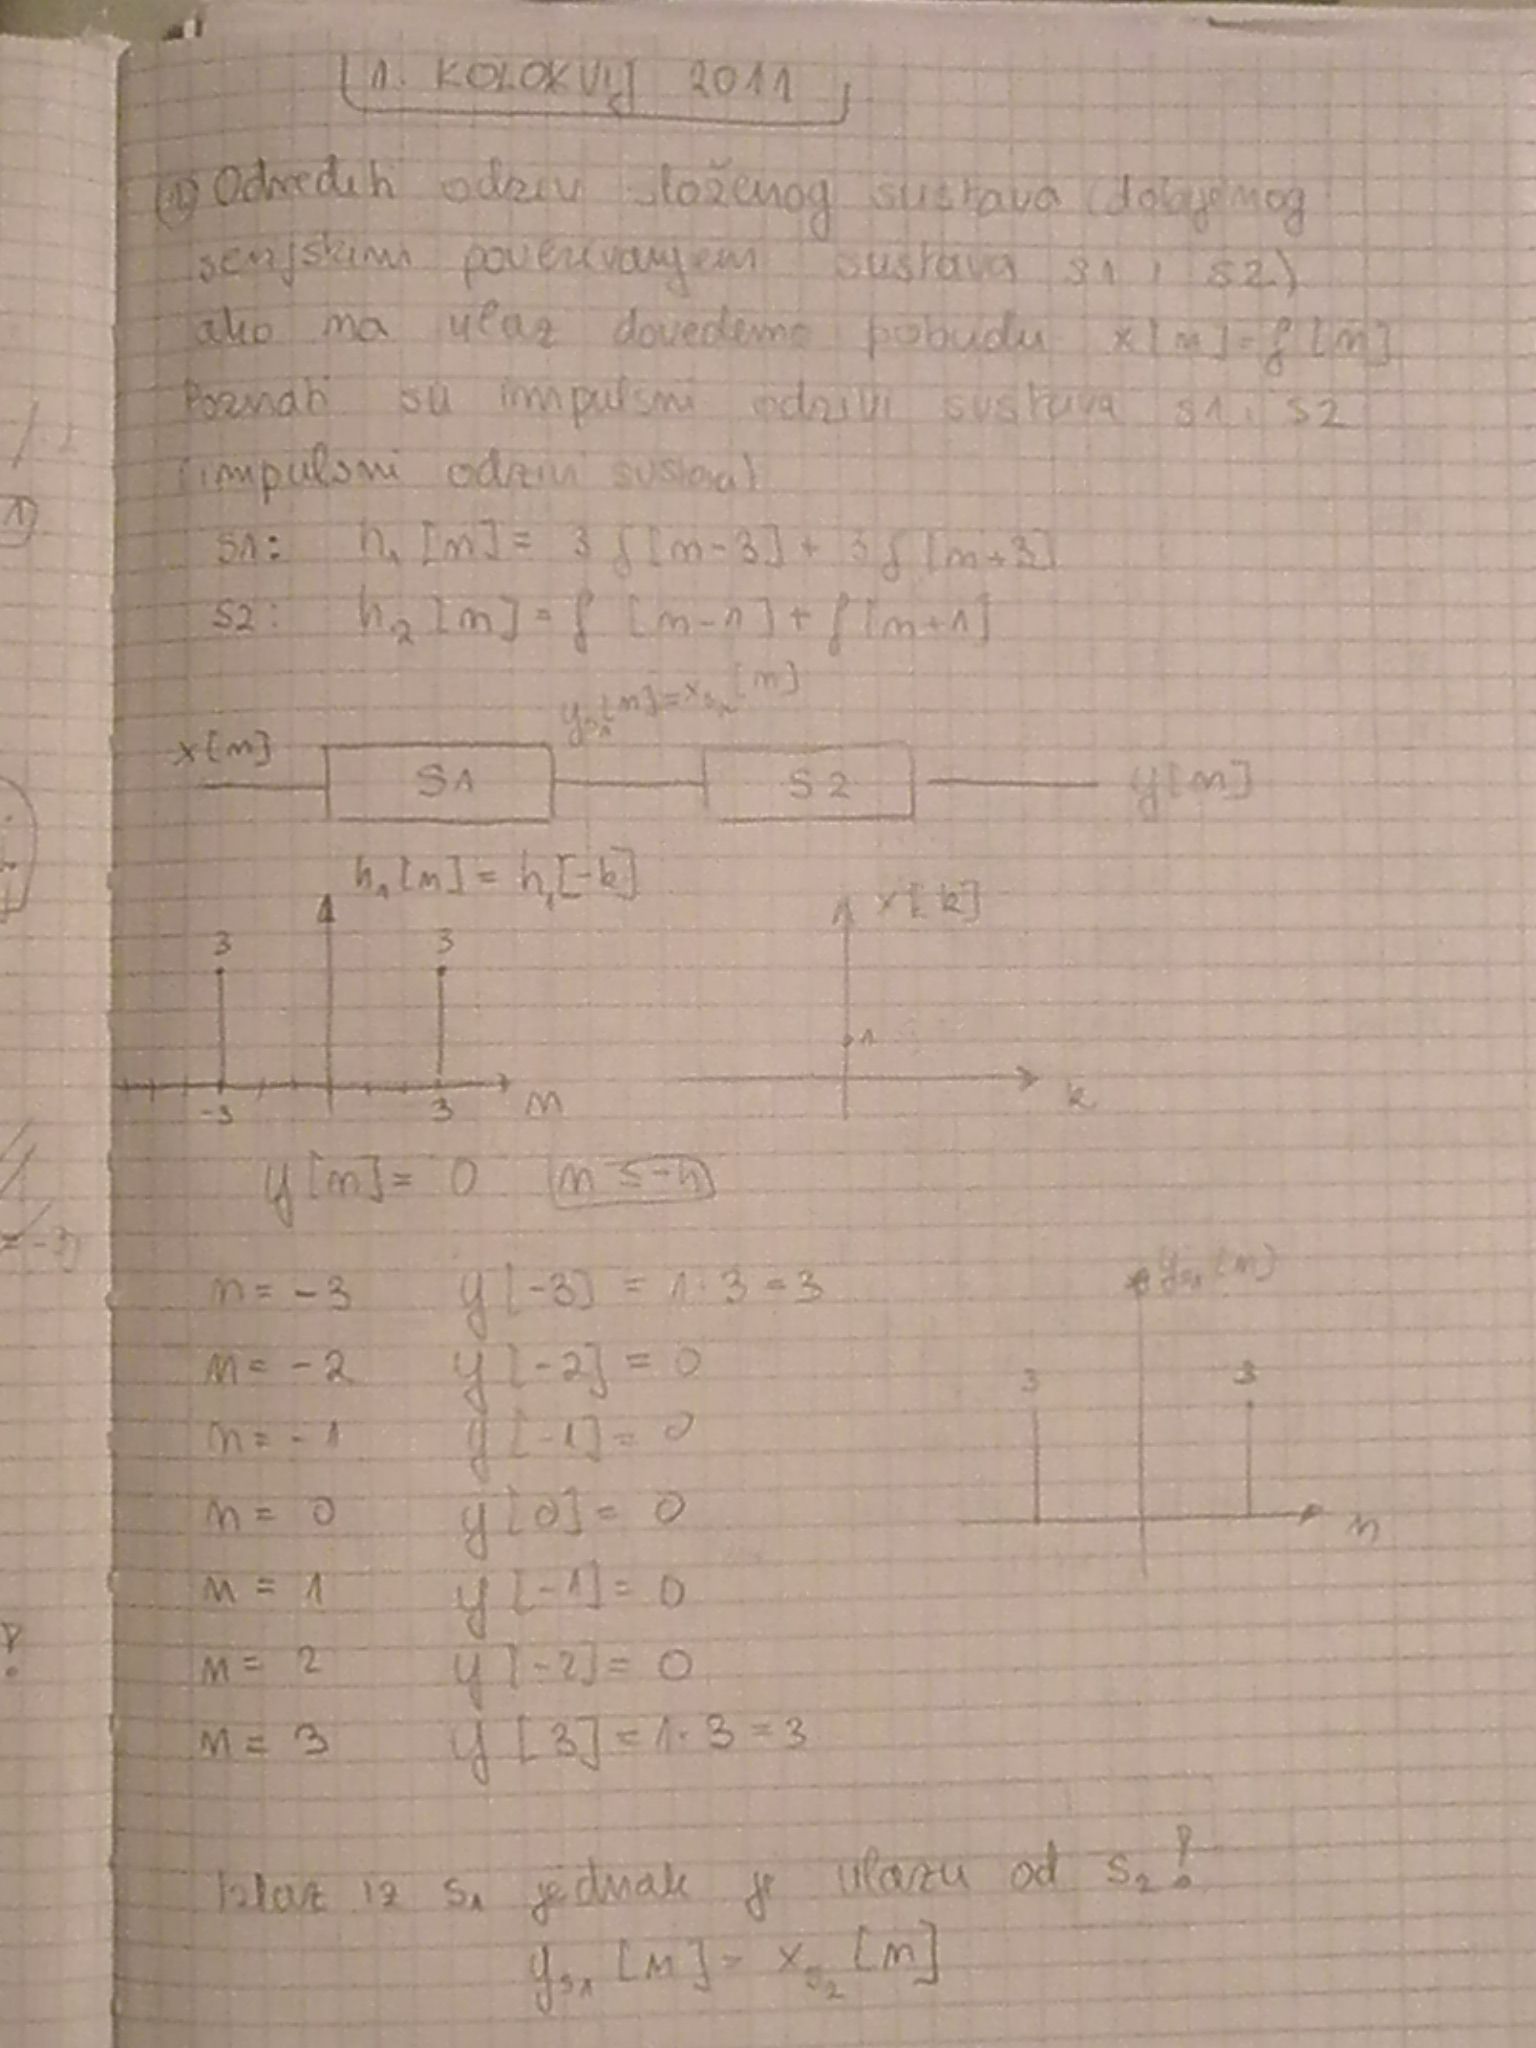 1. KOLOKVIJ 2011
1) Odrediti odziv složenog sustava (dobivenog
serijskim povezivanjem sustava S1 i S2)
ako na ulaz dovedemo pobudu x[n]=δ[n]
Poznati su impulsni odzivi sustava S1 i S2
(impulsni odzivi sustava)
S1: h₁[n]= 3δ[n-3]+3δ[n+3]
S2: h₂[n]=δ[n-1]+δ[n+1]
y_S1[n]=x_S2[n]
x[n] S1 S2 y[n]
h₁[n]=h₁[-k] x[k]
3 3
1
-3 3 n k
y[n]= 0
n=-3 y[-3]=1·3=3 y_S1[n]
n=-2 y[-2]=0 3 3
n=-1 y[-1]=0
n=0 y[0]=0 n
n=1 y[-1]=0
n=2 y[-2]=0
n=3 y[3]=1·3=3
Izlaz iz S₁ jednak je ulazu od S₂!
y_S1[n]=x_S2[n]